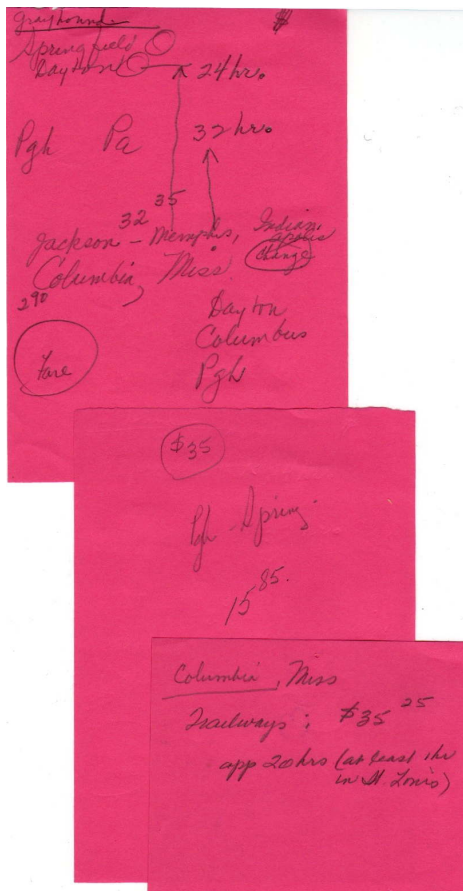 Greyhound
Springfield
Dayton 24 hr.
Pgh Pa 32 hr.
32 35
Jackson - Memphis, Indianapolis
Columbia, Miss. Change
2 90
Dayton
Columbus
Fare
Pgh
$35
Pgh Spring.
15 85.
Columbia, Miss
Trailways: $35 25
app 20 hrs (at least 1 hr
in St. Louis)